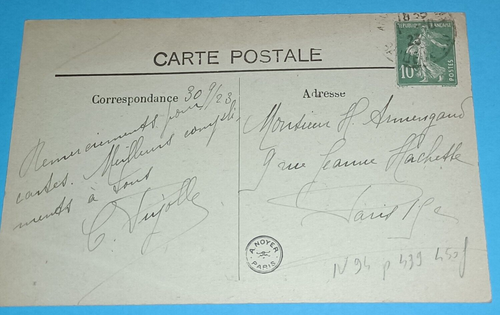 CARTE POSTALE
Correspondance 30 9/23
Remerciements pour
cartes. Meilleurs compli-
ments à tous
C.
Adresse
Monsieur H. Armengaud
9 rue Jeanne Hachette
Paris
REPUBLIQUE FRANÇAISE
10c
POSTES
A. NOYER
PARIS
N 94 p 439